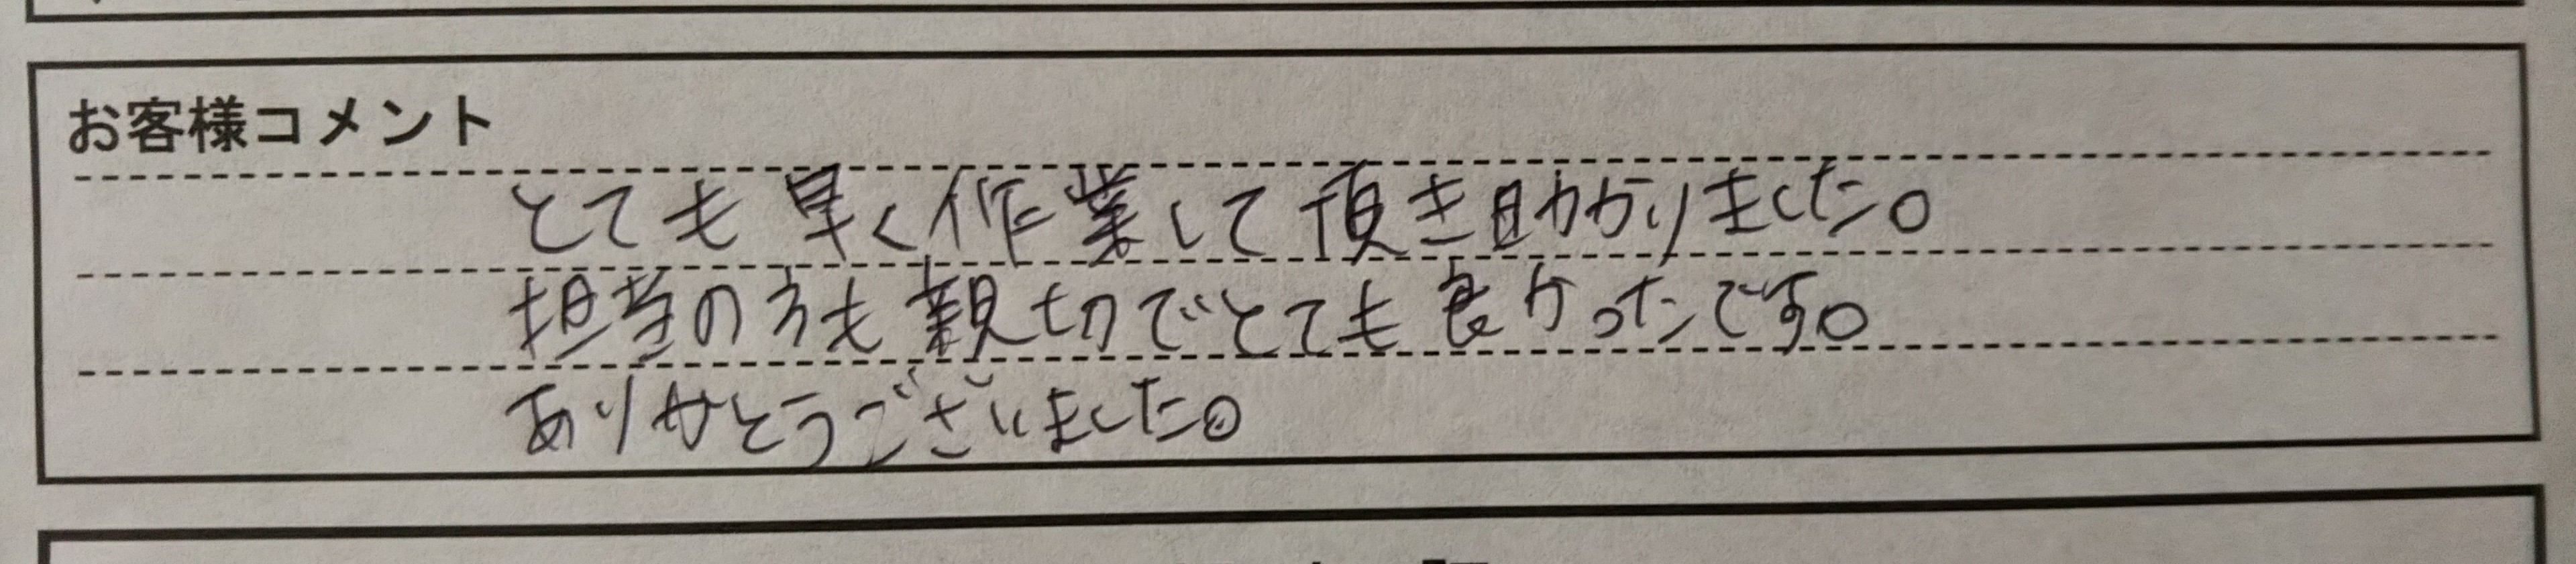 お客様コメント
とても早く作業して頂き助かりました。
担当の方も親切でとても良かったです。
ありがとうございました。